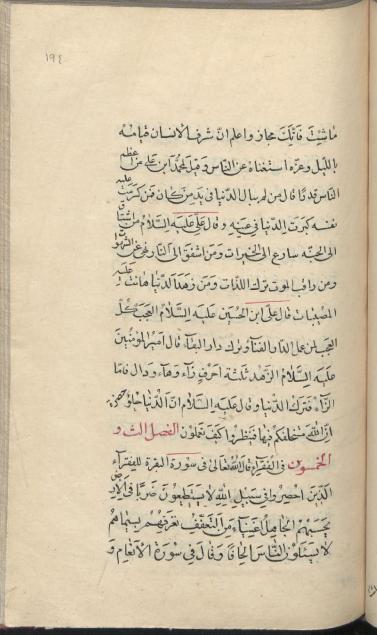 ١٩٤
ما شئت فانك مجاز واعلم ان شرف الانسان قيامه
بالليل وعزه استغناه عن الناس وقيل لمحمد ابن علي من اعظم
الناس قدرا قال من لم يبال الدنيا في يد من كان فمن كرمت عليه
نفسه كبرت الدنيا في عينه وقال علي عليه السلام من اشتاق
الى الجنة سارع الى الخيرات ومن اشفق الى النار لهى عن الشهوات
ومن راقب الموت ترك اللذات ومن زهد الدنيا هانت عليه
المصيبات قال علي ابن الحسين عليه السلام العجب كل
العجب لمن عمل لدار الفناء وترك دار البقاء قال امير المؤمنين
عليه السلام الزهد ثلثة احرف زاء وهاء ودال فاما
الزاء فترك الدنيا وقال عليه السلام ان الدنيا حلوة خضرة
ان الله مستخلفكم فيها فينظروا كيف تعملون الفصل الثالث و
الخمسون في الفقراء قال الله تعالى في سورة البقرة للفقراء
الذين احصروا في سبيل الله لا يستطيعون ضربا في الارض
يحسبهم الجاهل اغنياء من التعفف تعرفهم بسيماهم
لا يسئلون الناس الحافا وقال في سورة الانعام و